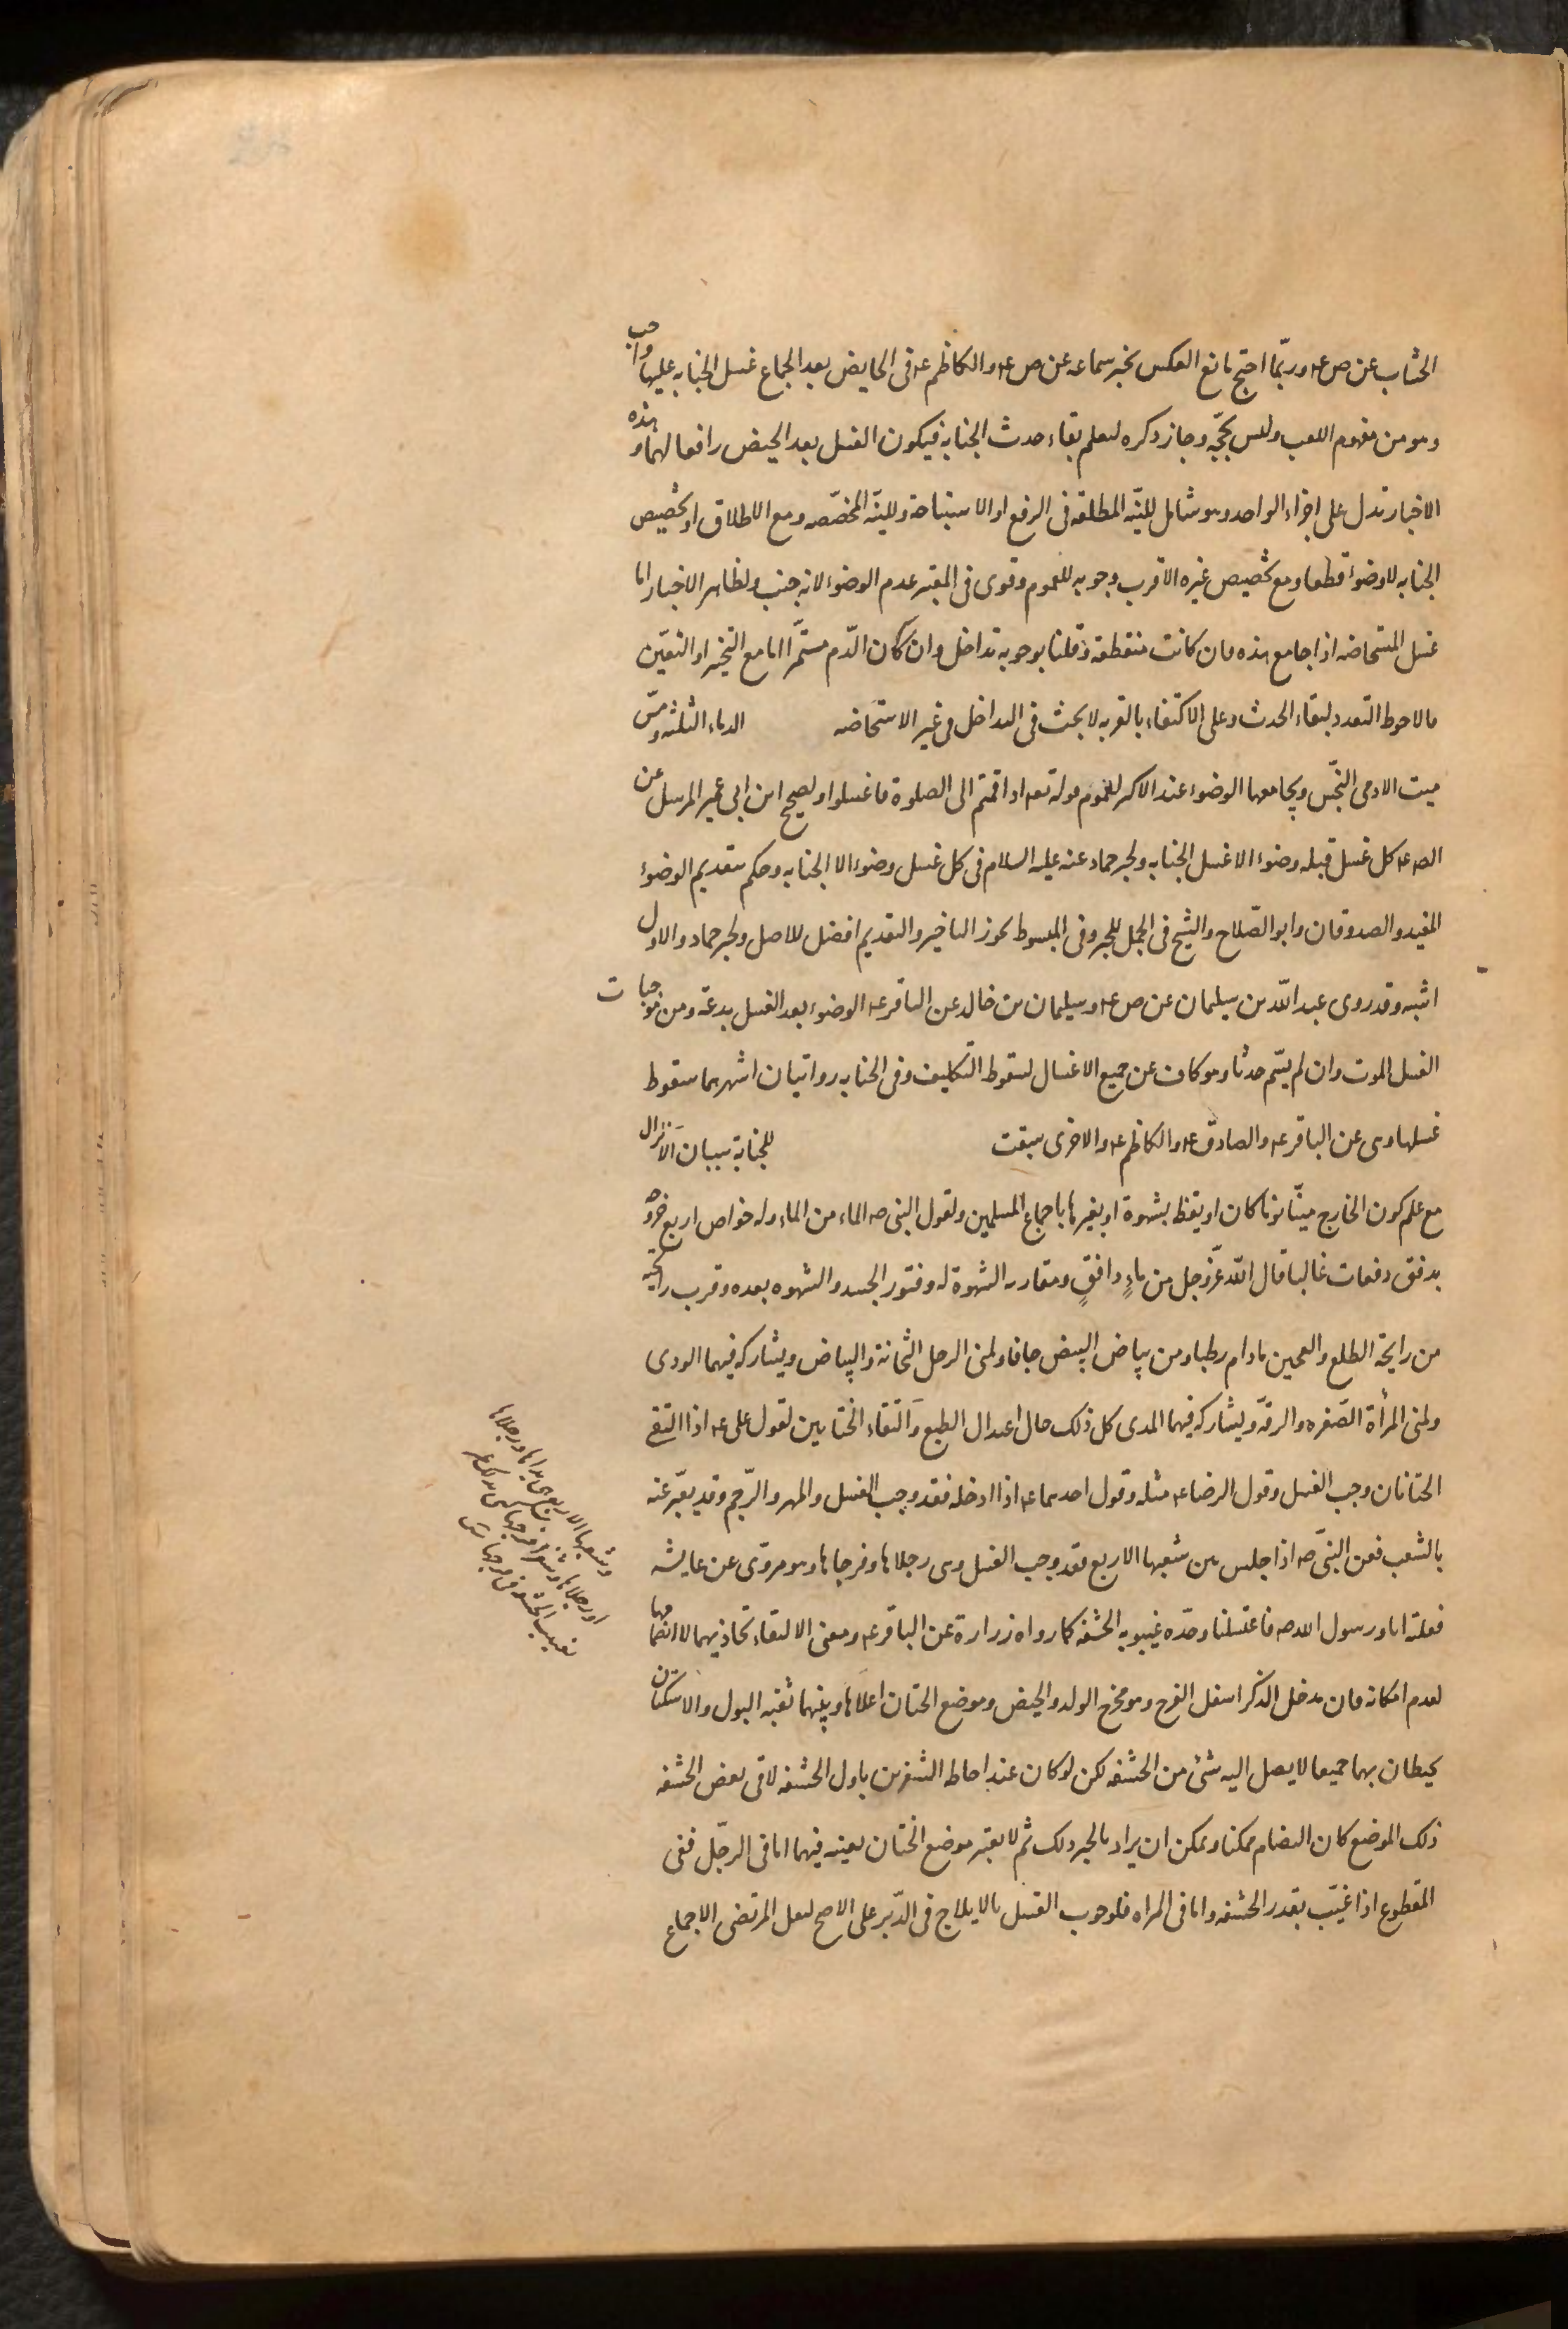 الخشاب عن ص عه وربّما احتج مانع العكس بخبر سماعه عن ص عه والكاظم عه فى الحايض بعد الجماع غسل الجنابه عليها واجب
وهو من مفهوم اللعب وليس بحجّه وجاز ذكره ليعلم بقاء حدث الجنابه فيكون الغسل بعد الحيض رافعا لهما وهذه
الاخبار تدل على اجزاء الواحد وهو شامل للنيّه المطلقه فى الرفع او الاستباحة وللنيّه المخصّصه ومع الاطلاق او تخصيص
الجنابه لا وضوء قطعا ومع تخصيص غيره الاقرب وجوبه للعموم وقوى فى المعتبر عدم الوضوء لانه جنب ولظاهر الاخبار اما
غسل المستحاضه اذا جامع هذه فان كانت منقطعة وقلنا بوجوبه تداخل وان كان الدّم مستمّرا اما مع التخير او التعيّن
فالاحوط التعدد لبقاء الحدث وعلى الاكتفاء بالقربه لا بحث فى التداخل فى غير الاستحاضه الدماء الثلثه ومسّ
ميت الادمى النجّس ويجامعها الوضوء عند الاكثر لعموم قوله تعه اذا قمتم الى الصلوة فاغسلوا ولصحيح ابن ابى عمير المرسل عن
الصه عه كل غسل قبله وضوء الا غسل الجنابه ولخبر حماد عنه عليه السلام فى كل غسل وضوء الا الجنابه وحكم بتقديم الوضوء
المفيد والصدوقان وابو الصّلاح والشيخ فى الجمل للخبر وفى المبسوط يجوز التاخير والتقديم افضل للاصل ولخبر حماد والاول
اشبه وقد روى عبد اللّه بن سليمان عن ص عه وسليمان بن خالد عن الباقر عه الوضوء بعد الغسل بدعة ومن موجبات
الغسل الموت وان لم يسّم حدثا وهو كاف عن جميع الاغسال لسقوط التكليف وفى الجنابه رواتيان اشهرهما سقوط
غسلها وهى عن الباقر عه والصادق عه والكاظم عه والاخرى سبقت للجنابة سببان الانزال
مع علم كون الخارج ميتّا نوما كان او يقظ بشهوة او بغيرها باجماع المسلمين ولقول النبى صه الماء من الماء وله خواص اربع خروجه
بدفق دفعات غالبا قال اللّه عزّ وجل من ماءٍ دافقٍ ومقارنه الشهوة له وفتور الجسد والشهوه بعده وقرب رايحته
من رايحة الطلع والعجين مادام رطبا ومن بياض البيض جافا ولمنى الرجل الثخانة والبياض ويشاركه فيهما الودى
ولمنى المرأة الصّفره والرقّه ويشاركه فيهما المذى كل ذلك حال اعتدال الطبع وَالتقاء الختانين لقول على عه اذا التقى
الختانان وجب الغسل وقول الرضا عه مثله وقول احدهما عه اذا ادخله فقد وجب الغسل والمهر والرّجم وقد يعبّر عنه
بالشعب فعن النبىّ صه اذا جلس بين شعبها الاربع فقد وجب الغسل وهى رجلاها وفرجاها وهو مروّى عن عايشه
فعلته انا ورسول الله صه فاغتسلنا وحدّه غيبوبه الحشفه كما رواه زرارة عن الباقر عه ومعنى الالتقاء تحاذيهما لا انضمامهما
لعدم امكانه فان مدخل الذكر اسفل الفرج وهو مخرج الولد والحيض وموضع الختان اعلاها وبينهما ثقبه البول والاسكتان
يحيطان بهما جميعا لا يصل اليه شئ من الحشفه لكن لو كان عند احاطه الشفرين باول الحشفه لاقى بعض الحشفه
ذلك الموضع كان التضام ممكنا ويمكن ان يراد بالخبر ذلك ثم لا يعتبر موضع الختان بعينه فيهما اما فى الرجّل ففى
المقطوع اذا غيّب بقدر الحشفه واما فى المراه فلوجوب الغسل بالايلاج فى الدّبر على الاصح لنقل المرتضى الاجماع
وشعبها الاربع هى يداها ورجلاها
او رجلاها وشفرا فرجها
تغييب الحشفه فى فرجها